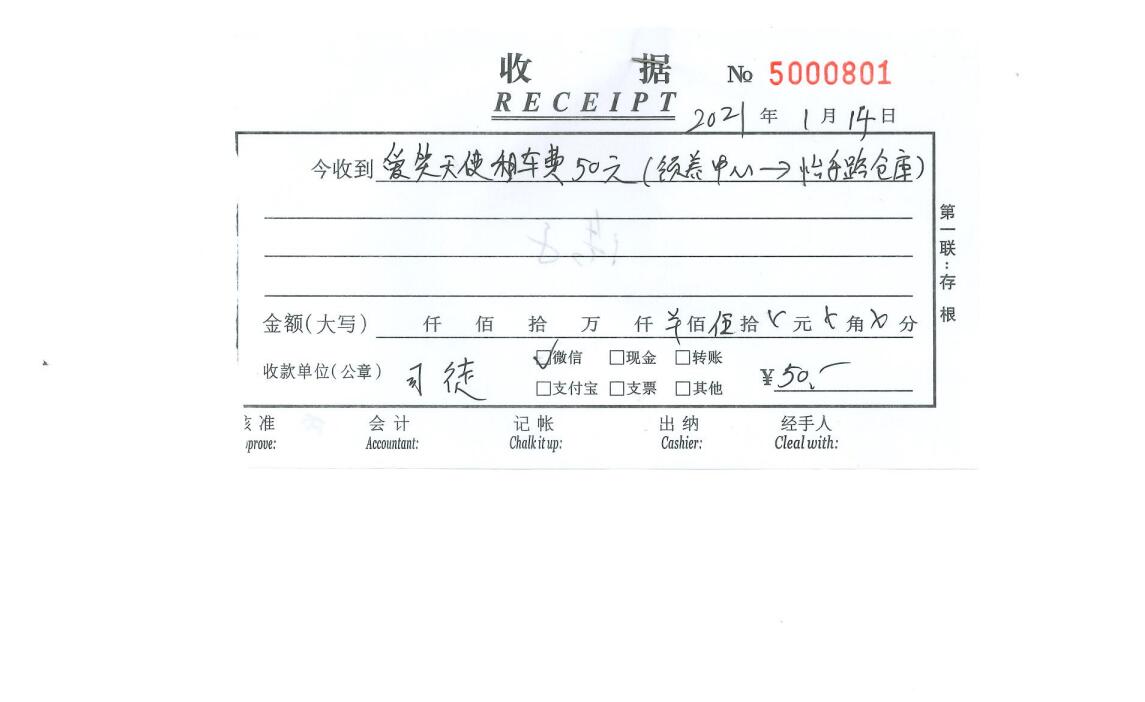 收 据 № 5000801
RECEIPT
2021 年 1 月 14 日
今收到 爱笑天使租车费50元(领养中心→怡乐路仓库)
金额(大写) 仟 佰 拾 万 仟 佰 伍 拾 元 角 分
收款单位(公章) 司徒
微信 现金 转账
支付宝 支票 其他
¥ 50.-
核准 会计 记帐 出纳 经手人
pprove: Accountant: Chalk it up: Cashier: Cleal with:
第一联:存根